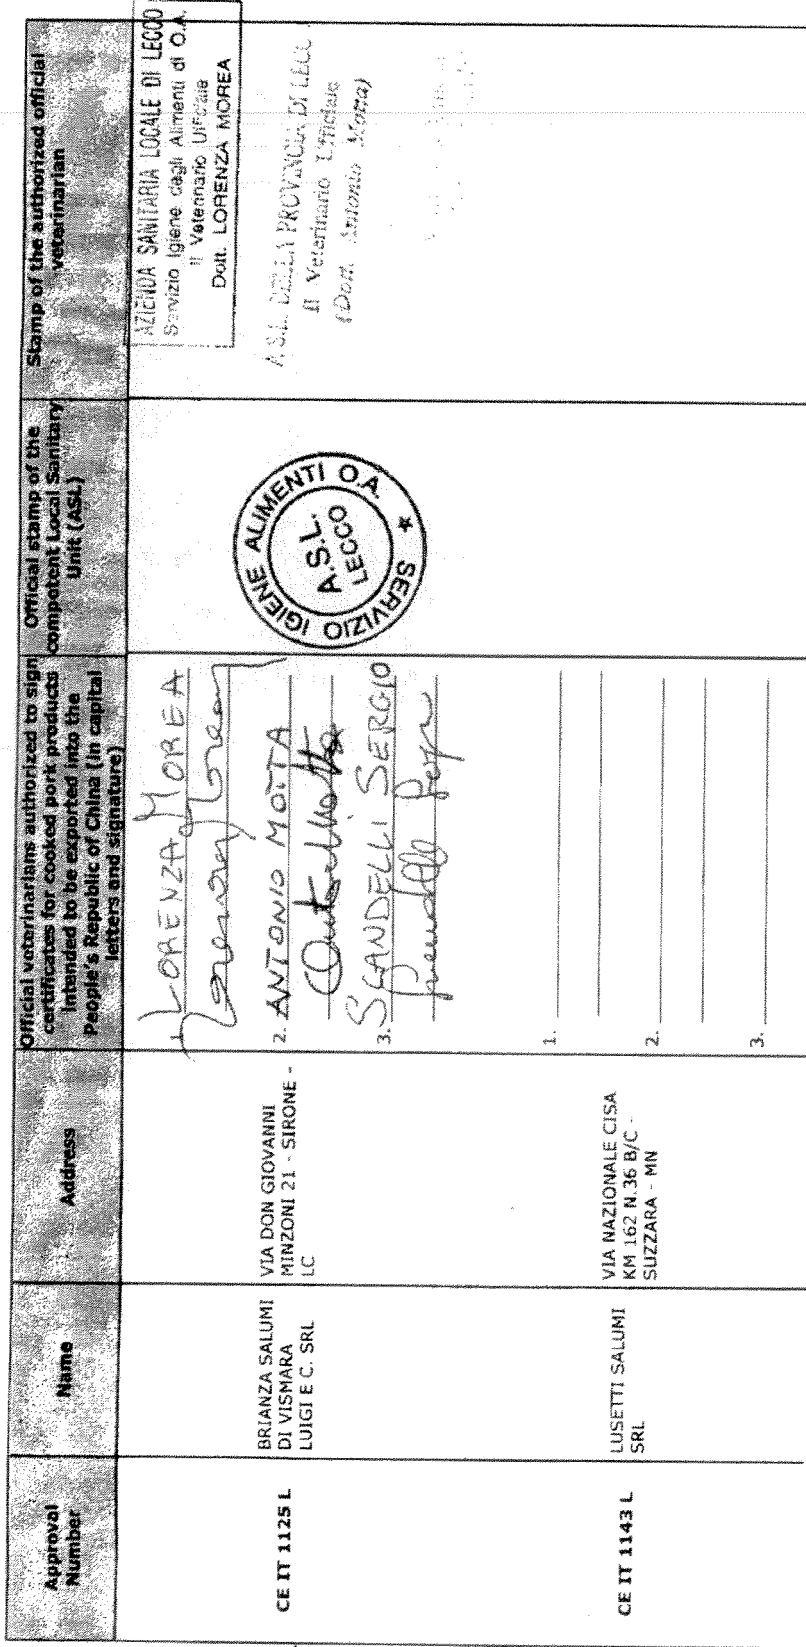 Approval
Number
Name
Address
Official veterinarians authorized to sign
certificates for cooked pork products
intended to be exported into the
People's Republic of China (in capital
letters and signature)
Official stamp of the
competent Local Sanitary
Unit (ASL)
Stamp of the authorized official
veterinarian
CE IT 1125 L
BRIANZA SALUMI
DI VISMARA
LUIGI E C. SRL
VIA DON GIOVANNI
MINZONI 21 - SIRONE -
LC
1. LORENZA MOREA
Lorenza Morea
2. ANTONIO MOTTA
3. SCANDELLI SERGIO
SERVIZIO IGIENE ALIMENTI O.A. *
A.S.L.
LECCO
AZIENDA SANITARIA LOCALE DI LECCO
Servizio Igiene degli Alimenti di O.A.
Il Veterinario Ufficiale
Dott. LORENZA MOREA
A.S.L. DELLA PROVINCIA DI LECC
Il Veterinario Ufficiale
(Dott. Antonio Motta)
CE IT 1143 L
LUSETTI SALUMI
SRL
VIA NAZIONALE CISA
KM 162 N.36 B/C -
SUZZARA - MN
1.
2.
3.